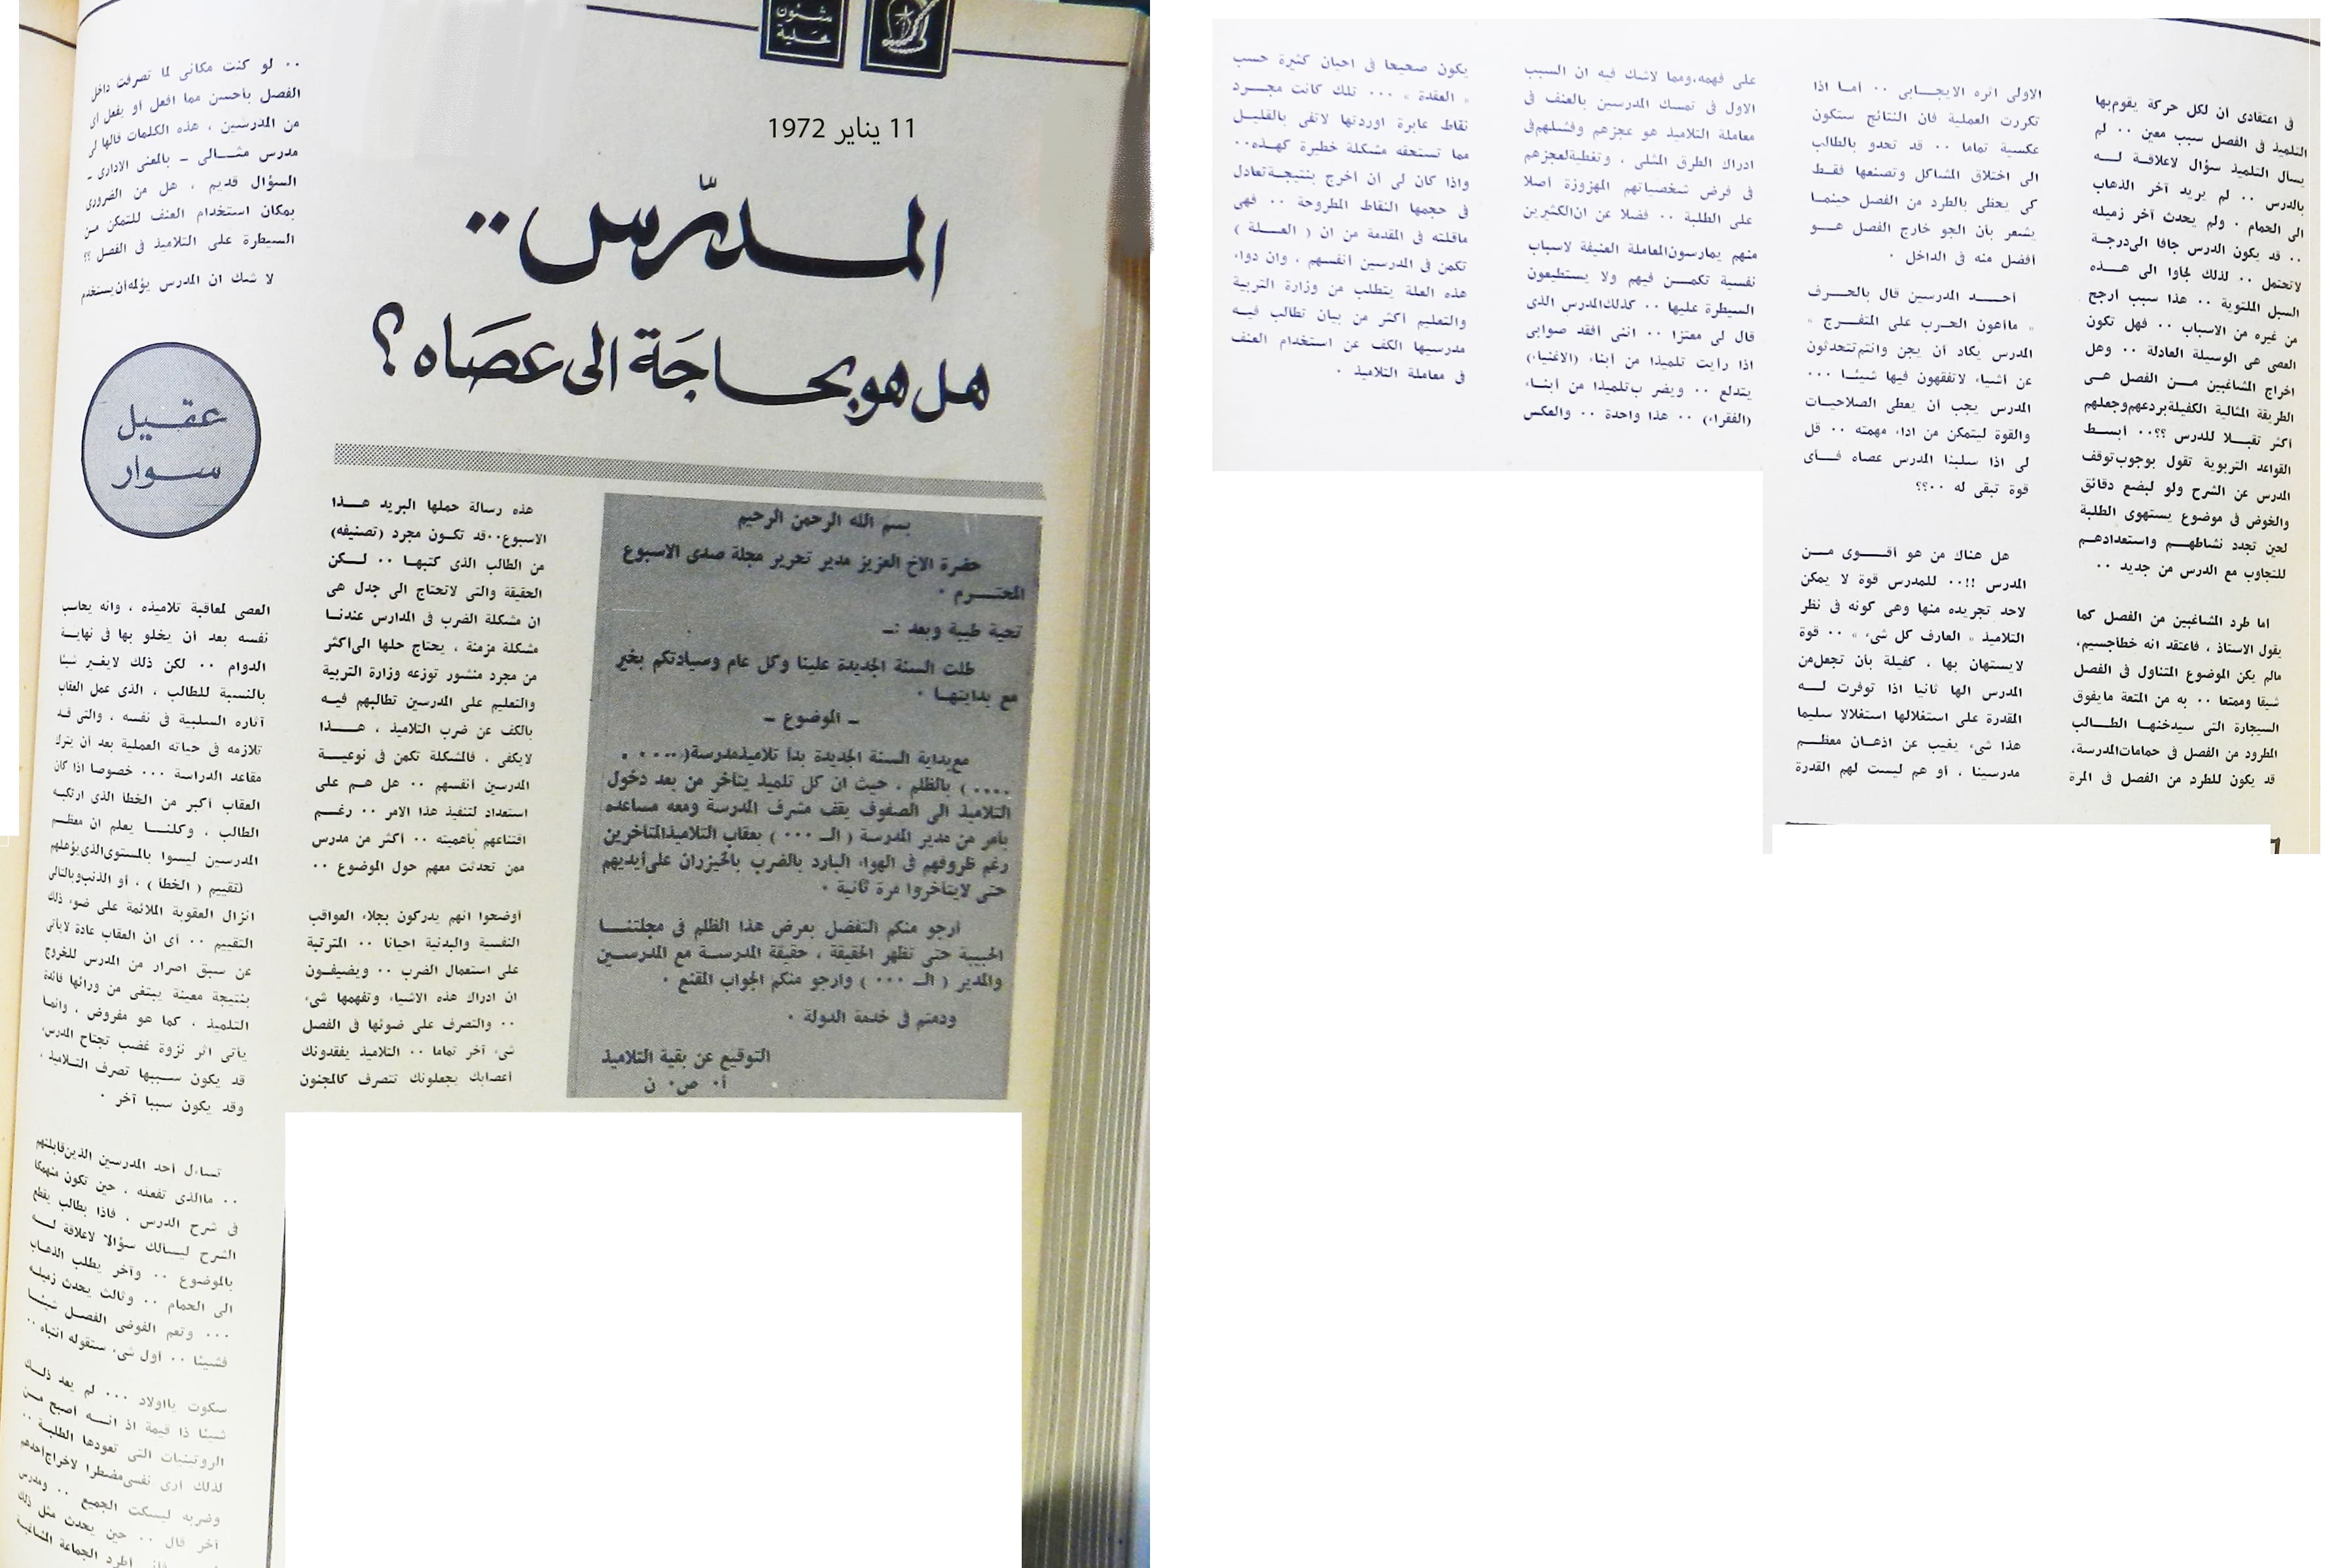 شئون
محلية
11 يناير 1972
المدرّس..
هل هو بحاجة الى عصاه ؟
بسم الله الرحمن الرحيم
حضرة الاخ العزيز مدير تحرير مجلة صدى الاسبوع
المحترم ٠
تحية طيبة وبعد :ـ
طلت السنة الجديدة علينا وكل عام وسيادتكم بخير
مع بدايتها ٠
ـ الموضوع ـ
مع بداية السنة الجديدة بدأ تلاميذ مدرسة (٠٠٠٠٠
٠٠٠٠ ) بالظلم ، حيث ان كل تلميذ يتأخر من بعد دخول
التلاميذ الى الصفوف يقف مشرف المدرسة ومعه مساعده
بأمر من مدير المدرسة ( الـ ٠٠٠ ) بعقاب التلاميذ المتأخرين
رغم ظروفهم فى الهواء البارد بالضرب بالخيزران على أيديهم
حتى لايتأخروا مرة ثانية ٠
أرجو منكم التفضل بعرض هذا الظلم فى مجلتنا
الحبيبة حتى تظهر الحقيقة ، حقيقة المدرسة مع المدرسين
والمدير ( الـ ٠٠٠ ) وارجو منكم الجواب المقنع ٠
ودمتم فى خدمة الدولة ٠
التوقيع عن بقية التلاميذ
أ٠ ص٠ ن
هذه رسالة حملها البريد هذا
الاسبوع٠٠قد تكون مجرد (تصنيفه)
من الطالب الذى كتبها ٠٠ لكن
الحقيقة والتى لاتحتاج الى جدل هى
ان مشكلة الضرب فى المدارس عندنا
مشكلة مزمنة ، يحتاج حلها الى أكثر
من مجرد منشور توزعه وزارة التربية
والتعليم على المدرسين تطالبهم فيه
بالكف عن ضرب التلاميذ ، هذا
لايكفى ، فالمشكلة تكمن فى نوعية
المدرسين أنفسهم ٠٠ هل هم على
استعداد لتنفيذ هذا الامر ٠٠ رغم
اقتناعهم بأهميته ٠٠ أكثر من مدرس
ممن تحدثت معهم حول الموضوع ٠٠
أوضحوا انهم يدركون بجلاء العواقب
النفسية والبدنية احيانا ٠٠ المترتبة
على استعمال الضرب ٠٠ ويضيفون
ان ادراك هذه الاشياء وتفهمها شىء
٠٠ والتصرف على ضوئها فى الفصل
شىء آخر تماما ٠٠ التلاميذ يفقدونك
أعصابك يجعلونك تتصرف كالمجنون
٠٠ لو كنت مكانى لما تصرفت داخل
الفصل بأحسن مما افعل أو يفعل أى
من المدرسين ، هذه الكلمات قالها لى
مدرس مثالى ـ بالمعنى الادارى ـ
السؤال قديم ، هل من الضرورى
بمكان استخدام العنف للتمكن من
السيطرة على التلاميذ فى الفصل ؟؟
لا شك ان المدرس يؤلمه أن يستخدم
عقيل
سوار
العصى لمعاقبة تلاميذه ، وانه يحاسب
نفسه بعد أن يخلو بها فى نهاية
الدوام ٠٠ لكن ذلك لايغير شيئا
بالنسبة للطالب ، الذى عمل العقاب
آثاره السلبية فى نفسه ، والتى قد
تلازمه فى حياته العملية بعد أن يترك
مقاعد الدراسة ٠٠٠ خصوصا اذا كان
العقاب أكبر من الخطأ الذى ارتكبه
الطالب ، وكلنا يعلم ان معظم
المدرسين ليسوا بالمستوى الذى يؤهلهم
لتقييم ( الخطأ ) ، أو الذنب وبالتالى
انزال العقوبة الملائمة على ضوء ذلك
التقييم ٠٠ أى ان العقاب عادة لايأتى
عن سبق اصرار من المدرس للخروج
بنتيجة معينة يبتغى من ورائها فائدة
التلميذ ، كما هو مفروض ، وانما
يأتى اثر نزوة غضب تجتاح المدرس،
قد يكون سببها تصرف التلاميذ ،
وقد يكون سببا آخر ٠
تساءل أحد المدرسين الذين قابلتهم
٠٠ ماالذى تفعله ، حين تكون منهمكا
فى شرح الدرس ، فاذا بطالب يقطع
الشرح ليسألك سؤالا لاعلاقة له
بالموضوع ٠٠ وآخر يطلب الذهاب
الى الحمام ٠٠ وثالث يحدث زميله
٠٠٠ وتعم الفوضى الفصل شيئا
فشيئا ٠٠ أول شىء ستقوله انتباه ٠٠
سكوت يااولاد ٠٠٠ لم يعد ذلك
شيئا ذا قيمة اذ انه اصبح من
الروتينيات التى تعودها الطلبة ٠٠
لذلك ارى نفسى مضطرا لاخراج احدهم
وضربه ليسكت الجميع ٠٠ ومدرس
آخر قال ٠٠ حين يحدث مثل ذلك
أطرد الجماعة المشاغبة
فى اعتقادى أن لكل حركة يقوم بها
التلميذ فى الفصل سبب معين ٠٠ لم
يسأل التلميذ سؤال لاعلاقة له
بالدرس ٠٠ لم يريد آخر الذهاب
الى الحمام ، ولم يحدث آخر زميله
٠٠ قد يكون الدرس جافا الى درجة
لاتحتمل ٠٠ لذلك لجأوا الى هذه
السبل الملتوية ٠٠ هذا سبب أرجح
من غيره من الاسباب ٠٠ فهل تكون
العصى هى الوسيلة العادلة ٠٠ وهل
اخراج المشاغبين من الفصل هى
الطريقة المثالية الكفيلة بردعهم وجعلهم
أكثر تقبلا للدرس ؟؟٠٠ أبسط
القواعد التربوية تقول بوجوب توقف
المدرس عن الشرح ولو لبضع دقائق
والخوض فى موضوع يستهوى الطلبة
لحين تجدد نشاطهم واستعدادهم
للتجاوب مع الدرس من جديد ٠٠
اما طرد المشاغبين من الفصل كما
يقول الاستاذ ، فاعتقد انه خطأ جسيم،
مالم يكن الموضوع المتناول فى الفصل
شيقا وممتعا ٠٠ به من المتعة مايفوق
السيجارة التى سيدخنها الطالب
المطرود من الفصل فى حمامات المدرسة،
قد يكون للطرد من الفصل فى المرة
الاولى اثره الايجابى ٠٠ أما اذا
تكررت العملية فان النتائج ستكون
عكسية تماما ٠٠ قد تحدو بالطالب
الى اختلاق المشاكل وتصنعها فقط
كى يحظى بالطرد من الفصل حينما
يشعر بأن الجو خارج الفصل هو
أفضل منه فى الداخل ٠
أحد المدرسين قال بالحرف
« ماأهون الحرب على المتفرج »
المدرس يكاد أن يجن وانتم تتحدثون
عن أشياء لاتفقهون فيها شيئا ٠٠٠
المدرس يجب أن يعطى الصلاحيات
والقوة ليتمكن من اداء مهمته ٠٠ قل
لى اذا سلبنا المدرس عصاه فأى
قوة تبقى له ٠٠؟؟
هل هناك من هو أقوى من
المدرس !!٠٠ للمدرس قوة لا يمكن
لاحد تجريده منها وهى كونه فى نظر
التلاميذ « العارف كل شىء » ٠٠ قوة
لايستهان بها ، كفيلة بأن تجعل من
المدرس الها ثانيا اذا توفرت له
المقدرة على استغلالها استغلالا سليما
هذا شىء يغيب عن اذهان معظم
مدرسينا ، أو هم ليست لهم القدرة
على فهمه،ومما لاشك فيه ان السبب
الاول فى تمسك المدرسين بالعنف فى
معاملة التلاميذ هو عجزهم وفشلهم فى
ادراك الطرق المثلى ، وتغطية لعجزهم
فى فرض شخصياتهم المهزوزة أصلا
على الطلبة ٠٠ فضلا عن ان الكثيرين
منهم يمارسون المعاملة العنيفة لاسباب
نفسية تكمن فيهم ولا يستطيعون
السيطرة عليها ٠٠ كذلك المدرس الذى
قال لى معتزا ٠٠ اننى أفقد صوابى
اذا رأيت تلميذا من أبناء (الاغنياء)
يتدلع ٠٠ ويضرب تلميذا من أبناء
(الفقراء) ٠٠ هذا واحدة ٠٠ والعكس
يكون صحيحا فى احيان كثيرة حسب
« العقدة » ٠٠٠ تلك كانت مجرد
نقاط عابرة اوردتها لاتفى بالقليل
مما تستحقه مشكلة خطيرة كهذه٠٠
واذا كان لى أن أخرج بنتيجة تعادل
فى حجمها النقاط المطروحة ٠٠ فهى
ماقلته فى المقدمة من ان ( العلة )
تكمن فى المدرسين أنفسهم ، وان دواء
هذه العلة يتطلب من وزارة التربية
والتعليم أكثر من بيان تطالب فيه
مدرسيها الكف عن استخدام العنف
فى معاملة التلاميذ ٠